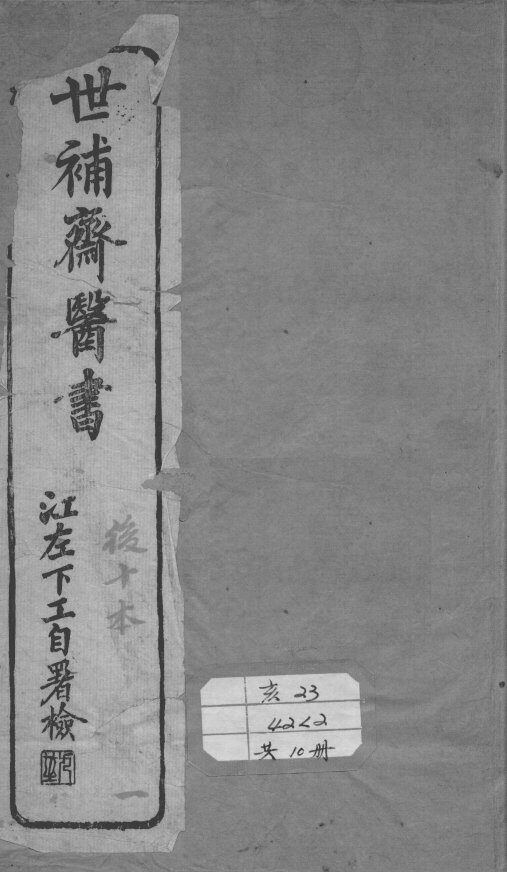 世補齋醫書
江左下工自署檢
後十本
一
亥 23
42<2
共 10 册